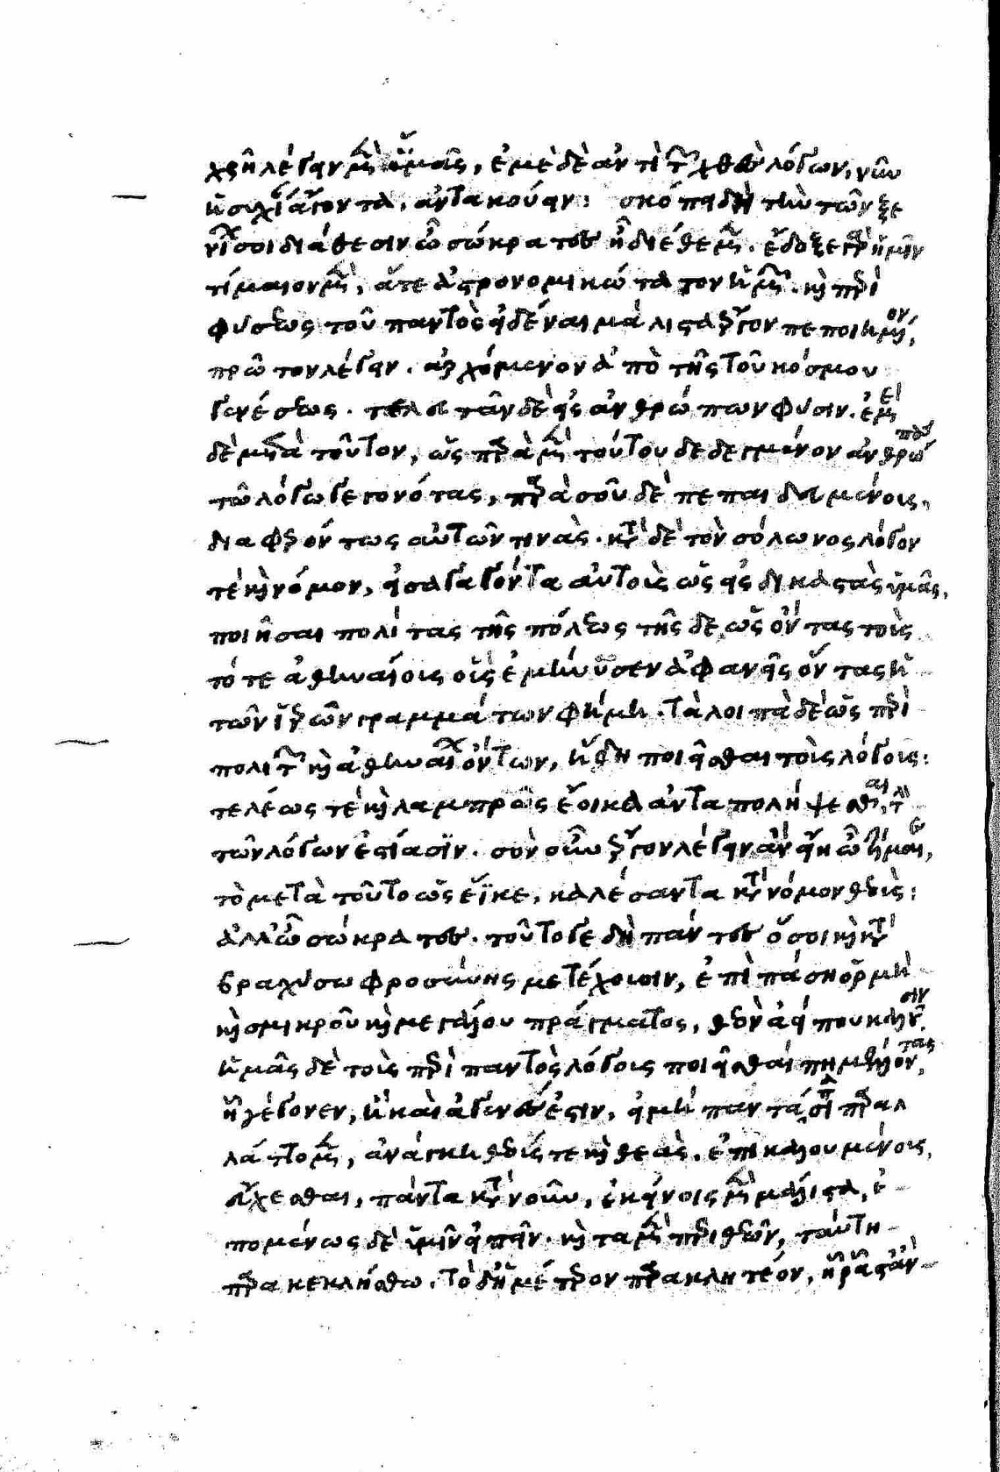 χρὴ λέγειν μὲν ὑμᾶς, ἐμὲ δὲ ἀντὶ τῶν χθὲς λόγων, νῦν
ἡσυχίαν ἄγοντα, ἀντακούειν: σκόπει δὴ τὴν τῶν ξε
νίων σοι διάθεσιν ὦ σώκρατες ᾗ διέθεμεν. ἔδοξε γὰρ ἡμῖν
τίμαιον μὲν, ἅτε ἀστρονομικώτατον ἡμῶν. καὶ περὶ
φύσεως τοῦ παντὸς εἰδέναι μάλιστα ἔργον πεποιημένον,
πρῶτον λέγειν. ἀρχόμενον ἀπὸ τῆς τοῦ κόσμου
γενέσεως. τελευτᾶν δὲ εἰς ἀνθρώπων φύσιν. ἐμὲ
δὲ μετὰ τοῦτον, ὡς παρὰ μὲν τούτου δεδεγμένον ἀνθρώπους
τῷ λόγῳ γεγονότας, παρὰ σοῦ δὲ πεπαιδευμένους
διαφερόντως αὐτῶν τινάς. κατὰ δὲ τὸν σόλωνος λόγον
τε καὶ νόμον, εἰσαγαγόντα αὐτοὺς ὡς εἰς δικαστὰς ἡμᾶς,
ποιῆσαι πολίτας τῆς πόλεως τῆσδε, ὡς ὄντας τοὺς
τότε ἀθηναίους οὓς ἐμήνυσεν ἀφανεῖς ὄντας ἡ
τῶν ἱερῶν γραμμάτων φήμη. τὰ λοιπὰ δὲ ὡς περὶ
πολιτῶν καὶ ἀθηναίων ὄντων, ἤδη ποιεῖσθαι τοὺς λόγους:
τελέως τε καὶ λαμπρῶς ἔοικα ἀνταπολήψεσθαι, τὴν
τῶν λόγων ἑστίασιν. σὸν οὖν ἔργον λέγειν ἂν εἴη ὦ τίμαιε,
τὸ μετὰ τοῦτο ὡς ἔοικε, καλέσαντα κατὰ νόμον θεούς:
ἀλλ' ὦ σώκρατες. τοῦτό γε δὴ πάντες ὅσοι καὶ κατὰ
βραχὺ σωφροσύνης μετέχουσιν, ἐπὶ πάσῃ ὁρμῇ
καὶ σμικροῦ καὶ μεγάλου πράγματος, θεὸν ἀεί που καλοῦσιν.
ἡμᾶς δὲ τοὺς περὶ παντὸς λόγους ποιεῖσθαί πῃ μέλλοντας,
ᾗ γέγονεν, ἢ καὶ ἀγενές ἐστιν, εἰ μὴ παντάπασι παραλ
λάττομεν, ἀνάγκη θεούς τε καὶ θεὰς. ἐπικαλουμένους,
εὔχεσθαι, πάντα κατὰ νοῦν, ἐκείνοις μὲν μάλιστα, ἑ
πομένως δὲ ἡμῖν εἰπεῖν. καὶ τὰ μὲν περὶ θεῶν, ταύτῃ
παρακεκλήσθω. τὸ δὴ ἡμέτερον παρακλητέον, ᾗ ῥᾷστ' ἂν